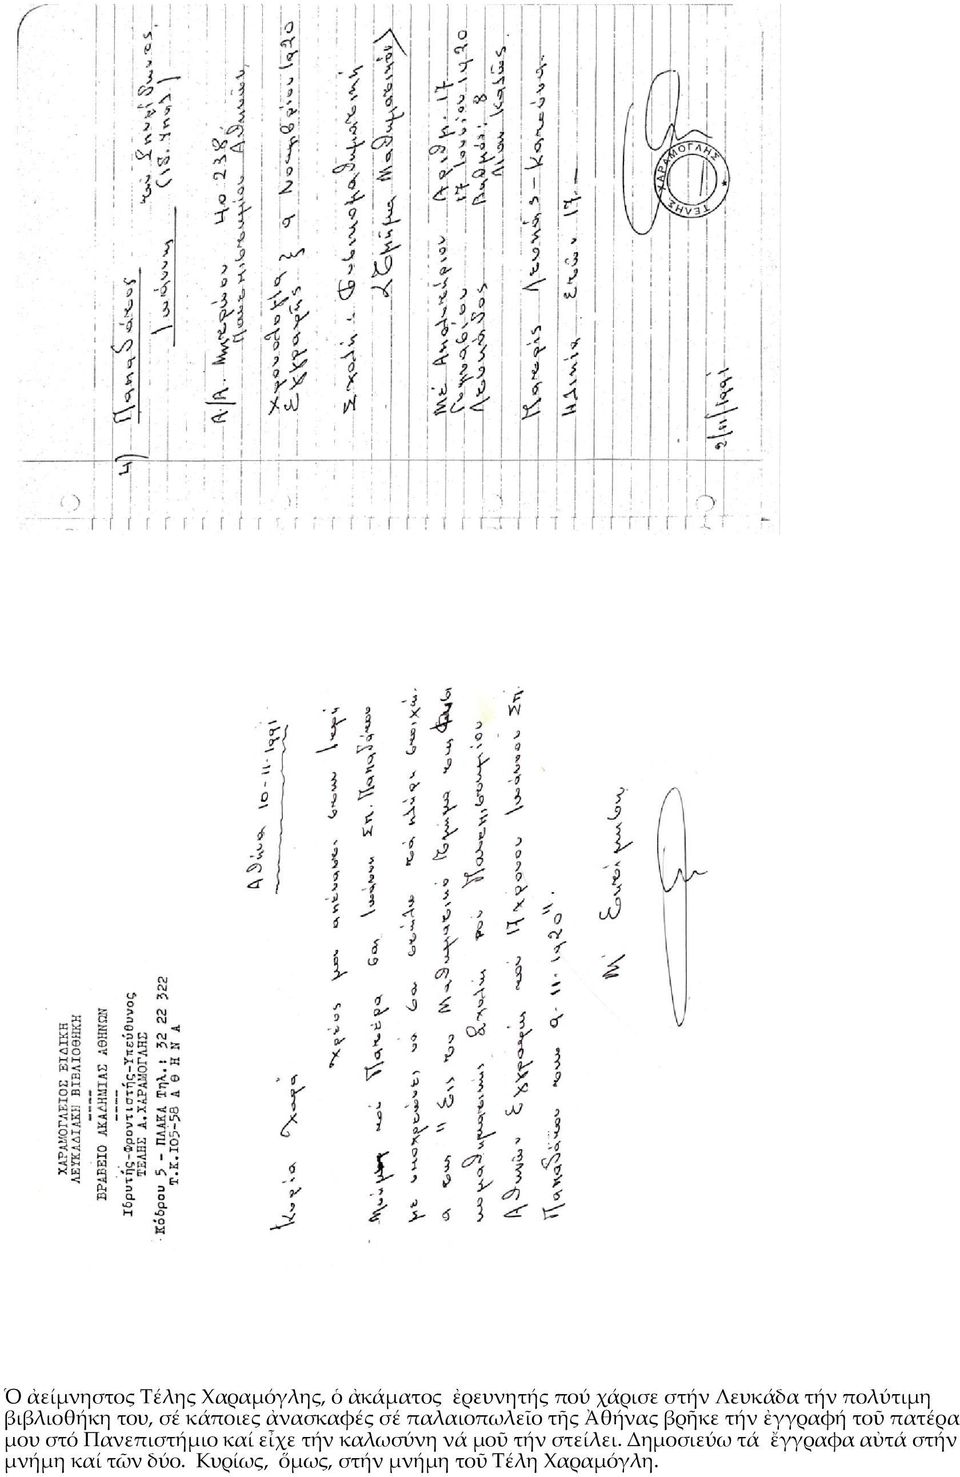 4) Παπαδάτος τοῦ Σπυρίδωνος,
Ἰωάννης (18. Υπαλ)
Α/Α. Μητρώου 40238,
Πανεπιστημίου Ἀθηνῶν,
Χρονολογία
Ἐγγραφῆς } 9 Νοεμβρίου 1920
Σχολή: Φυσικομαθηματική
(Τμῆμα Μαθηματικόν)
Μέ Ἀπολυτήριον Ἀριθμ. 17
Γυμνασίου 17 Ἰουνίου 1920
Λευκάδος Βαθμός: 8
Λίαν Καλῶς.
Πατρίς Λευκάς - Κατούνα.
Ηλικία ἐτῶν 17.-
ΤΕΛΗΣ ΧΑΡΑΜΟΓΛΗΣ
2/11/1991
ΧΑΡΑΜΟΓΛΕΙΟΣ ΕΙΔΙΚΗ
ΛΕΥΚΑΔΙΑΚΗ ΒΙΒΛΙΟΘΗΚΗ
----
ΒΡΑΒΕΙΟ ΑΚΑΔΗΜΙΑΣ ΑΘΗΝΩΝ
----
Ιδρυτής-Φροντιστής-Υπεύθυνος
ΤΕΛΗΣ Α.ΧΑΡΑΜΟΓΛΗΣ
Κόδρου 5 - ΠΛΑΚΑ Τηλ.: 32 22 322
Τ.Κ.105-58 Α Θ Η Ν Α
Αθήνα 10-11-1991
Κυρία Χαρά
χρέος μου απέναντι στην Ιερή
Μνήμη του Πατέρα σας Ιωάννη Σπ. Παπαδάτου
με υποχρεώνει να σα στείλω τα πλήρη στοιχεία
α της "Εις το Μαθηματικό Τμήμα της Φυσι
κομαθηματικής Σχολής του Πανεπιστημίου
Αθηνών Εγγραφής του 17χρονου Ιωάννου Σπ.
Παπαδάτου την 9-11-1920".
Μ' Εκτίμηση
Ὁ ἀείμνηστος Τέλης Χαραμόγλης, ὁ ἀκάματος ἐρευνητής πού χάρισε στήν Λευκάδα τήν πολύτιμη
βιβλιοθήκη του, σέ κάποιες ἀνασκαφές σέ παλαιοπωλεῖο τῆς Ἀθήνας βρῆκε τήν ἐγγραφή τοῦ πατέρα
μου στό Πανεπιστήμιο καί εἶχε τήν καλωσύνη νά μοῦ τήν στείλει. Δημοσιεύω τά ἔγγραφα αὐτά στήν
μνήμη καί τῶν δύο. Κυρίως, ὅμως, στήν μνήμη τοῦ Τέλη Χαραμόγλη.